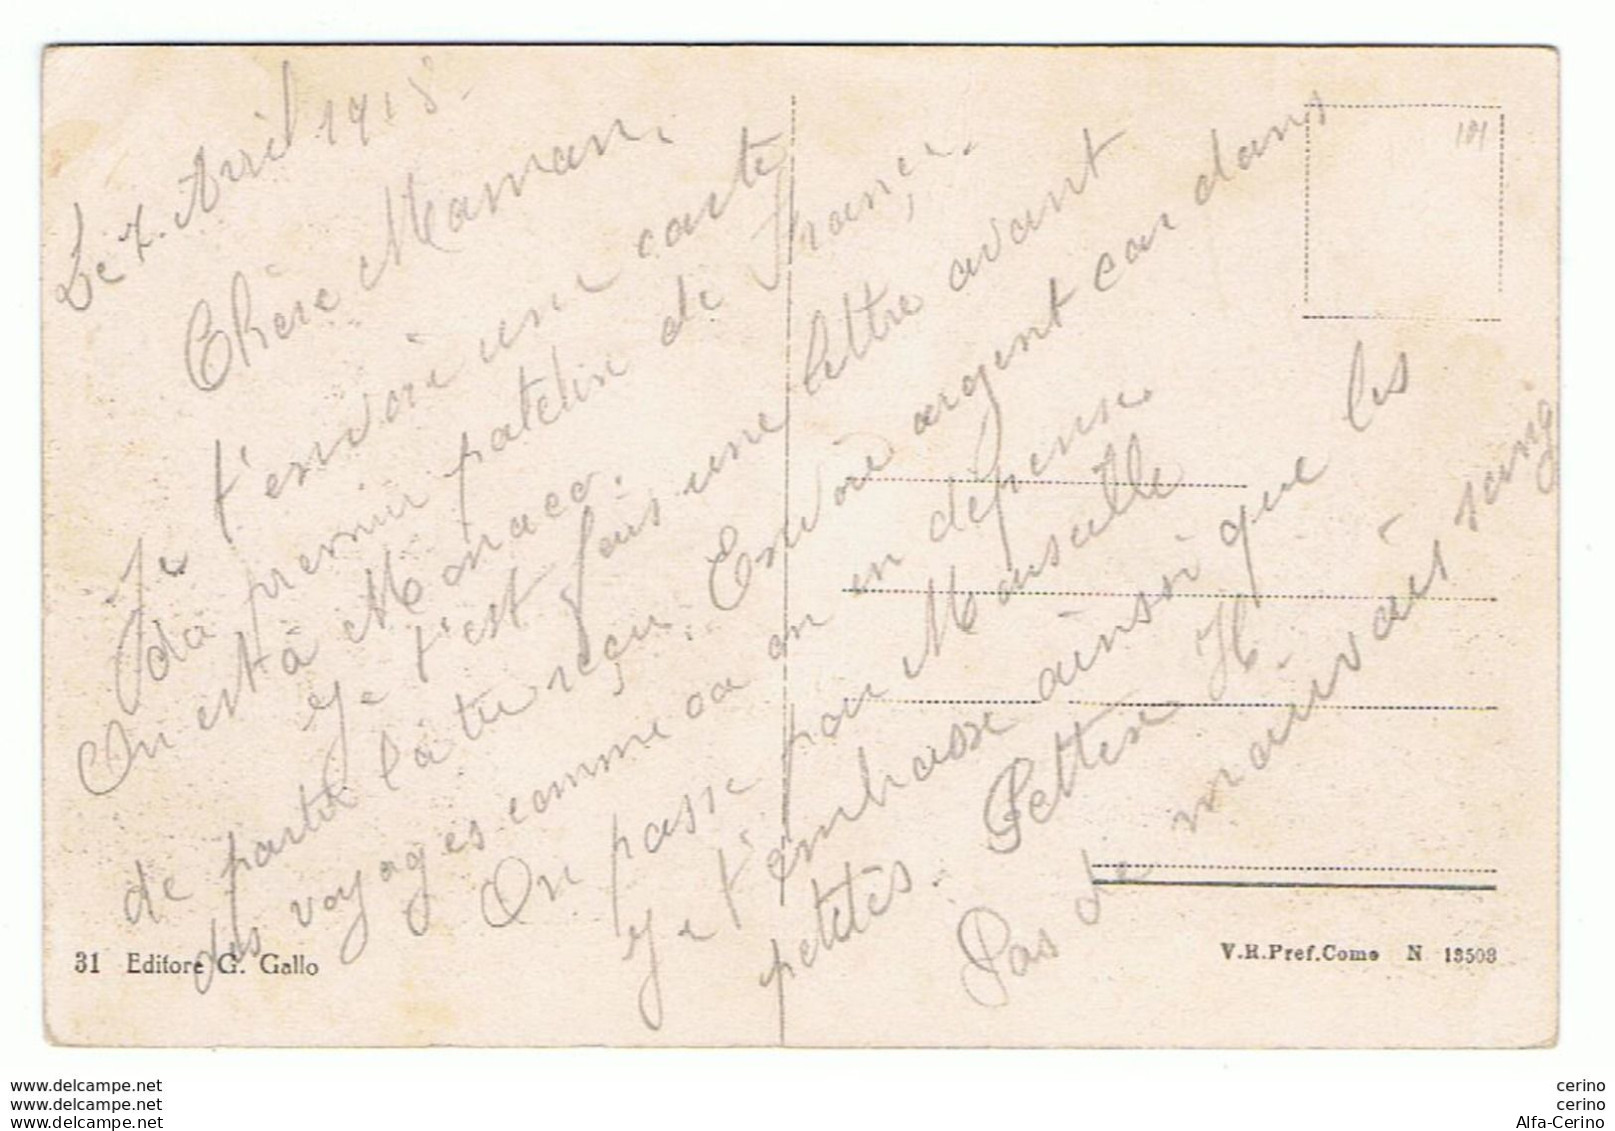 Le 7 Avril 1918
Chère Maman.
Je t'envoie une carte
du premier patelin de France.
On est à Monaco.
Je t'est fais une lettre avant
de partir la tu reçu. Envoie argent car dans
des voyages comme ca on en dépense.
On passe par Marseille
Je t'embrasse ainssi que les
petites. Pettex H
Pas de mauvais sang
101
31 Editore G. Gallo
V.R.Pref.Como N 13503
www.delcampe.net
www.delcampe.net
www.delcampe.net
cerino
cerino
Alfa-Cerino